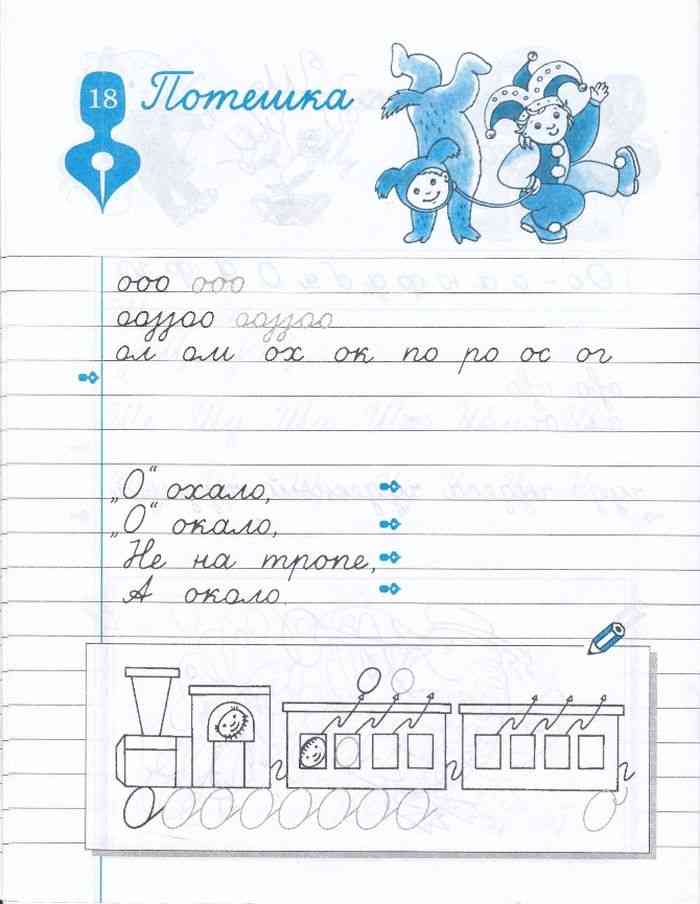 18 Потешка
ооо ооо
оаууао оаууао
ал ам ох ок по ро ос ог
„О“ охало,
„О“ окало,
Не на тропе,
А около.